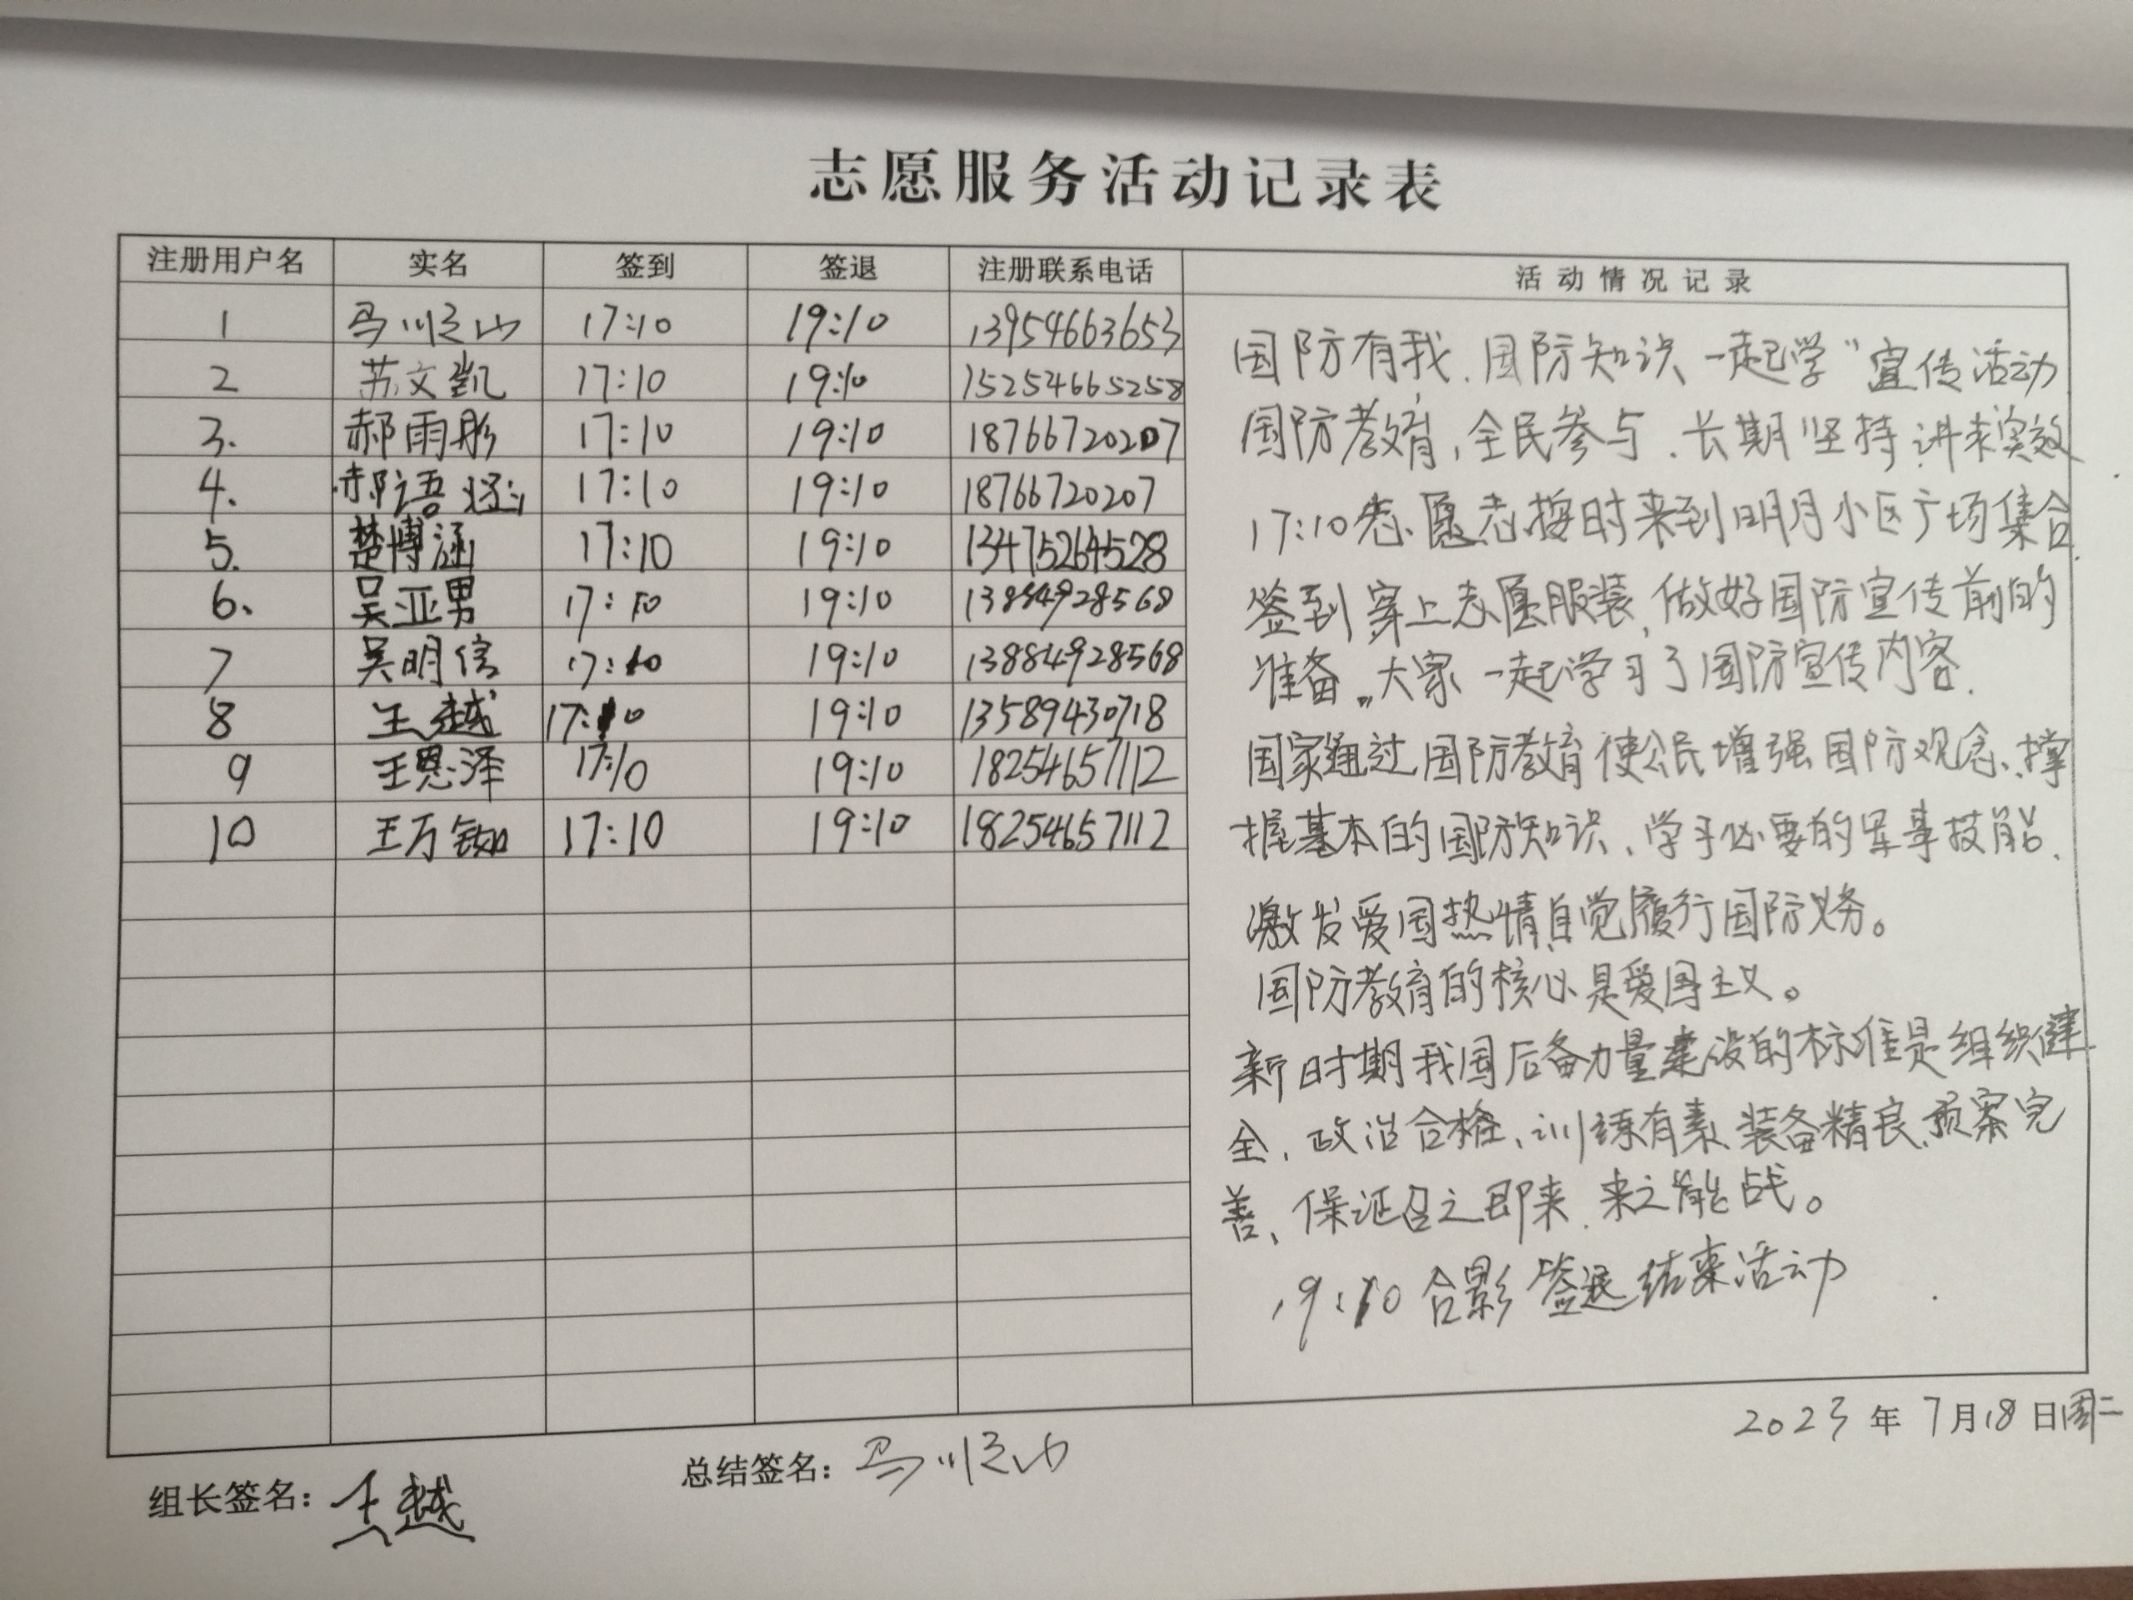 志愿服务活动记录表
注册用户名 实名 签到 签退 注册联系电话 活动情况记录
1 马顺山 17:10 19:10 13954663653
2 苏文凯 17:10 19:10 15254665258
3. 郝雨彤 17:10 19:10 18766720207
4. 郝语涵 17:10 19:10 18766720207
5. 楚博涵 17:10 19:10 13475264528
6. 吴亚男 17:10 19:10 13884928568
7 吴明信 17:10 19:10 13884928568
8 王越 17:10 19:10 13589430718
9 王恩泽 17:10 19:10 18254657112
10 王万铷 17:10 19:10 18254657112
国防有我、国防知识一起学"宣传活动
国防教育,全民参与、长期坚持、讲求实效
17:10志愿者按时来到明月小区广场集合
签到穿上志愿服装,做好国防宣传前的
准备。大家一起学习了国防宣传内容.
国家通过国防教育使公民增强国防观念、掌
握基本的国防知识、学习必要的军事技能、
激发爱国热情自觉履行国防义务。
国防教育的核心是爱国主义。
新时期我国后备力量建设的标准是组织健
全、政治合格、训练有素、装备精良、预案完
善、保证召之即来、来之能战。
19:10合影签退结束活动
2023年7月18日周二
组长签名:王越 总结签名:马顺山